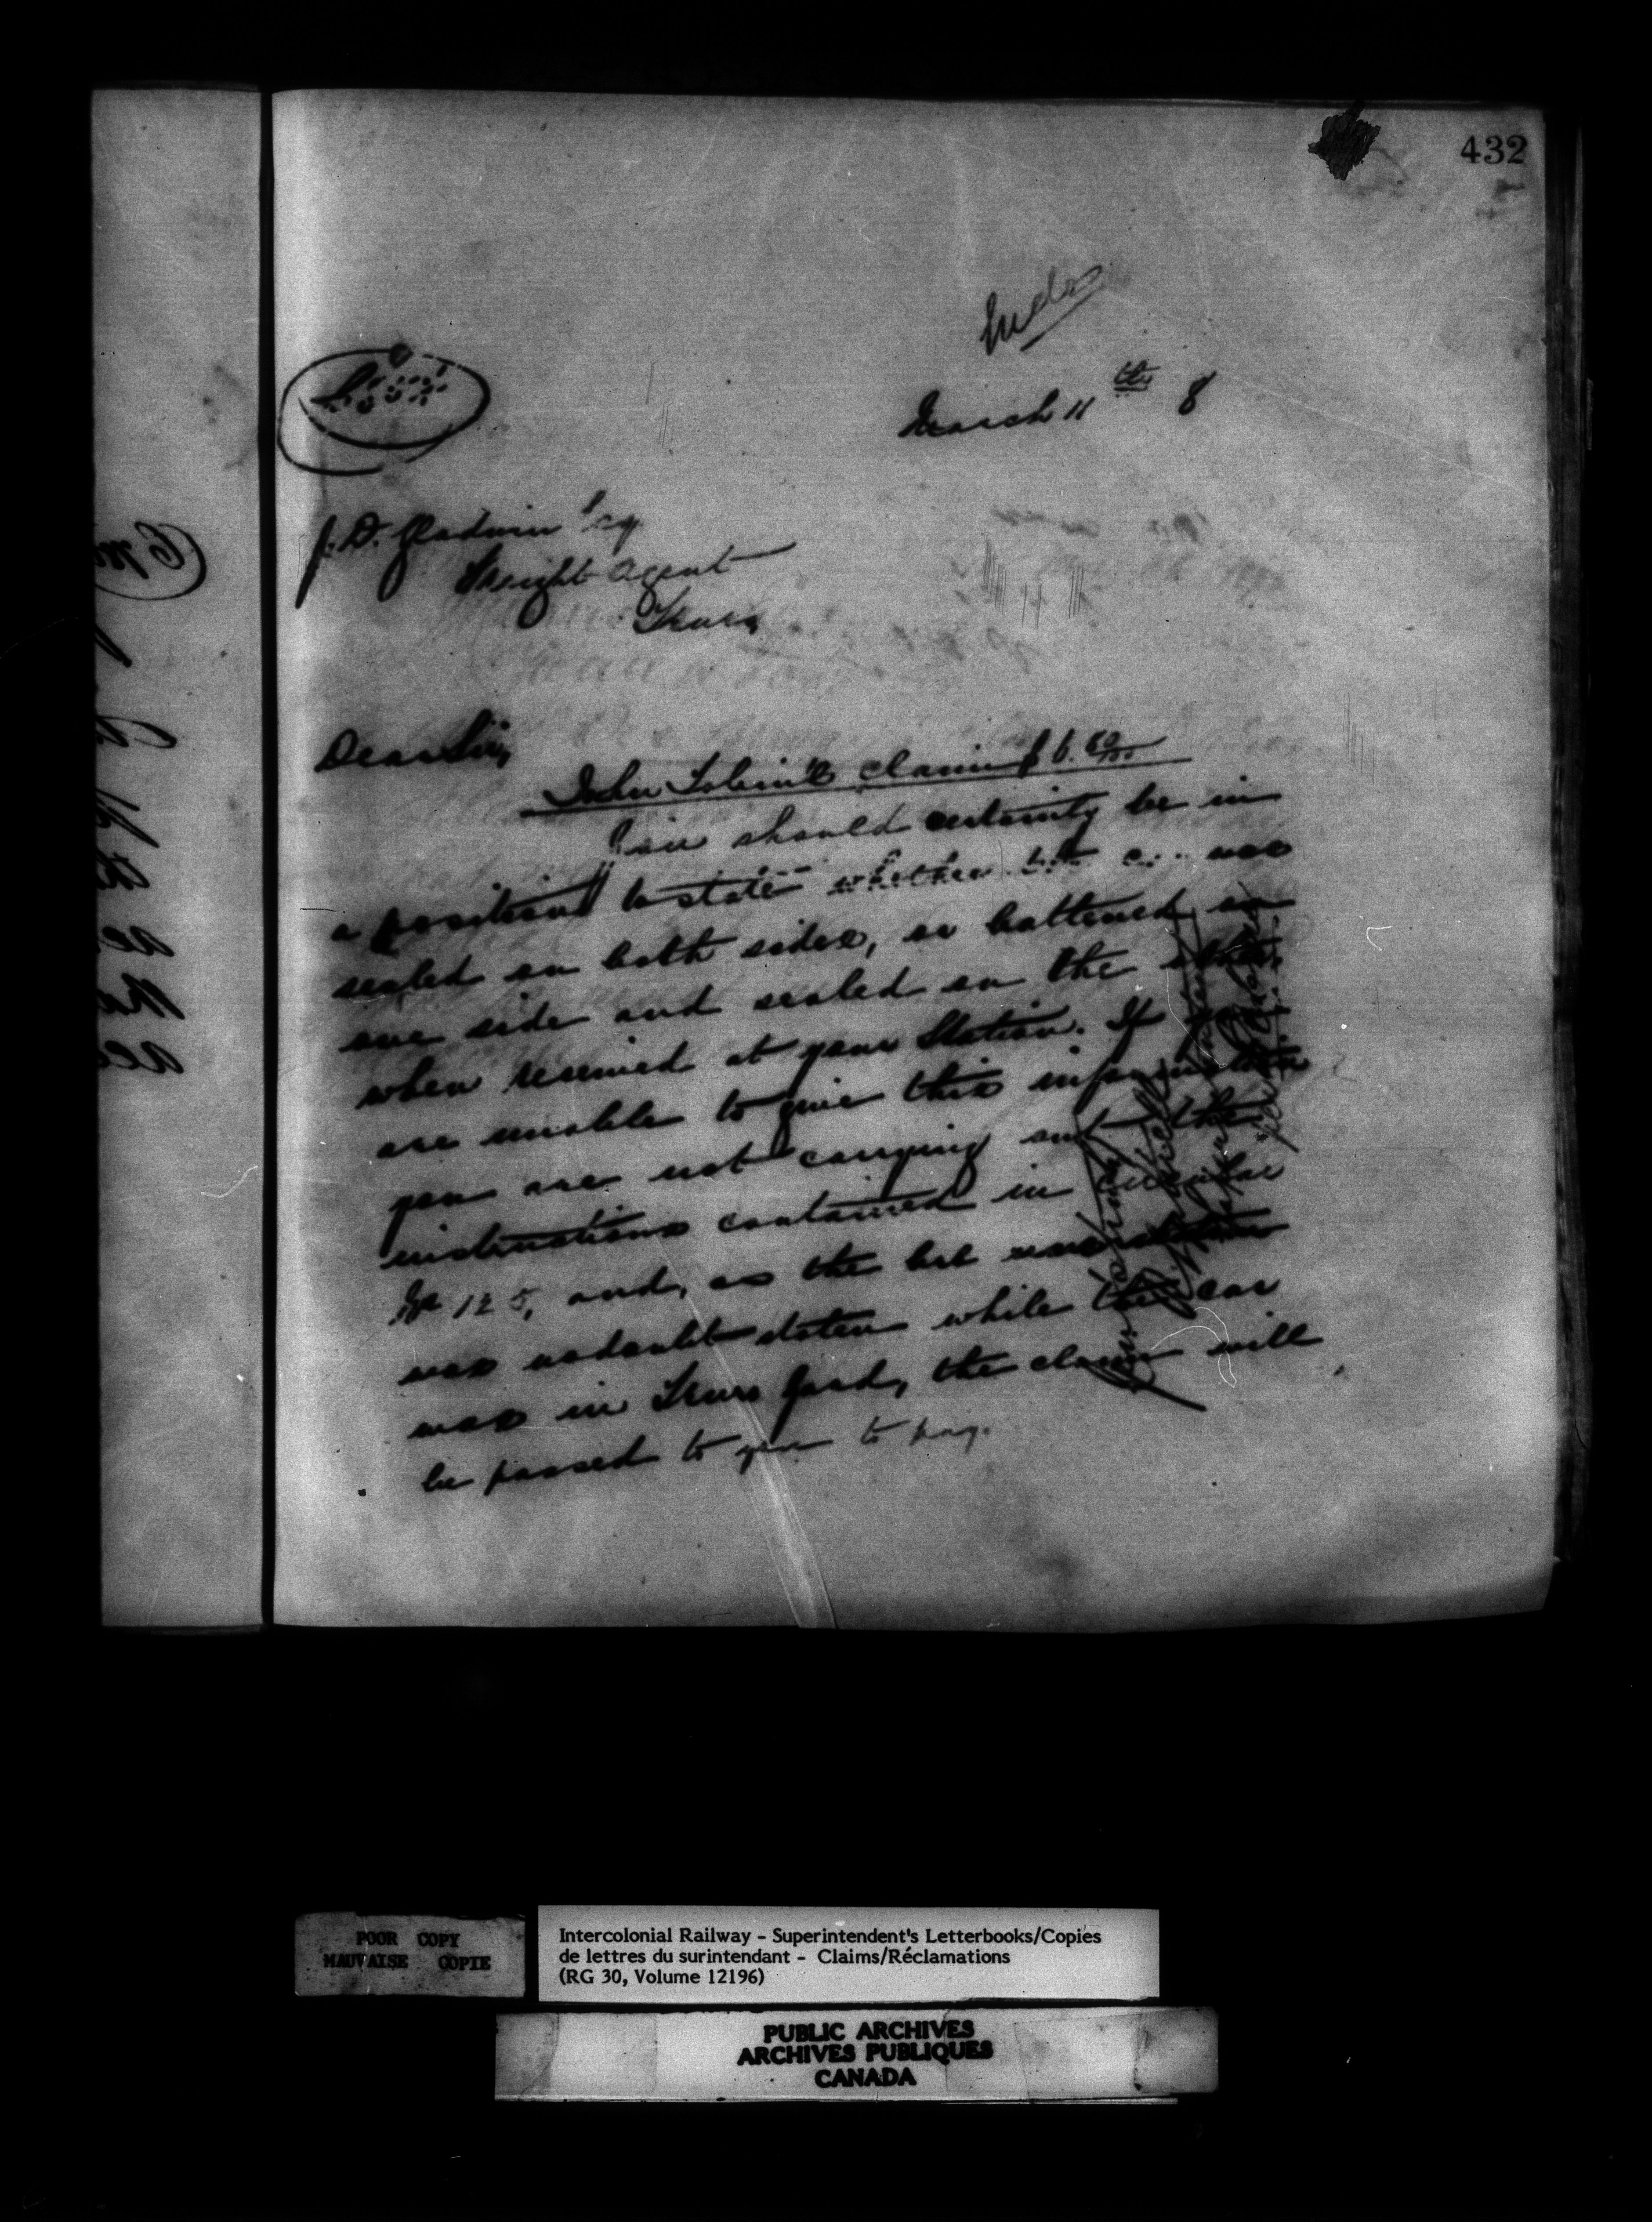 432
March 11th 8
J. D. Gladwin Esq
Freight Agent
Truro
Dear Sir,
John Tobin's claim $6.60/100
You should certainly be in
a position to state whether was
sealed on both sides, or battened on
one side and sealed on the other
when received at your Station. If you
are unable to give this information
you are not carrying out the
instructions contained in circular
No 125, and, as the
was nodoubt stolen while the car
was in Truro yard, the claim will
be passed to you to pay.
POOR COPY
MAUVAISE COPIE
Intercolonial Railway - Superintendent's Letterbooks/Copies
de lettres du surintendant - Claims/Réclamations
(RG 30, Volume 12196)
PUBLIC ARCHIVES
ARCHIVES PUBLIQUES
CANADA